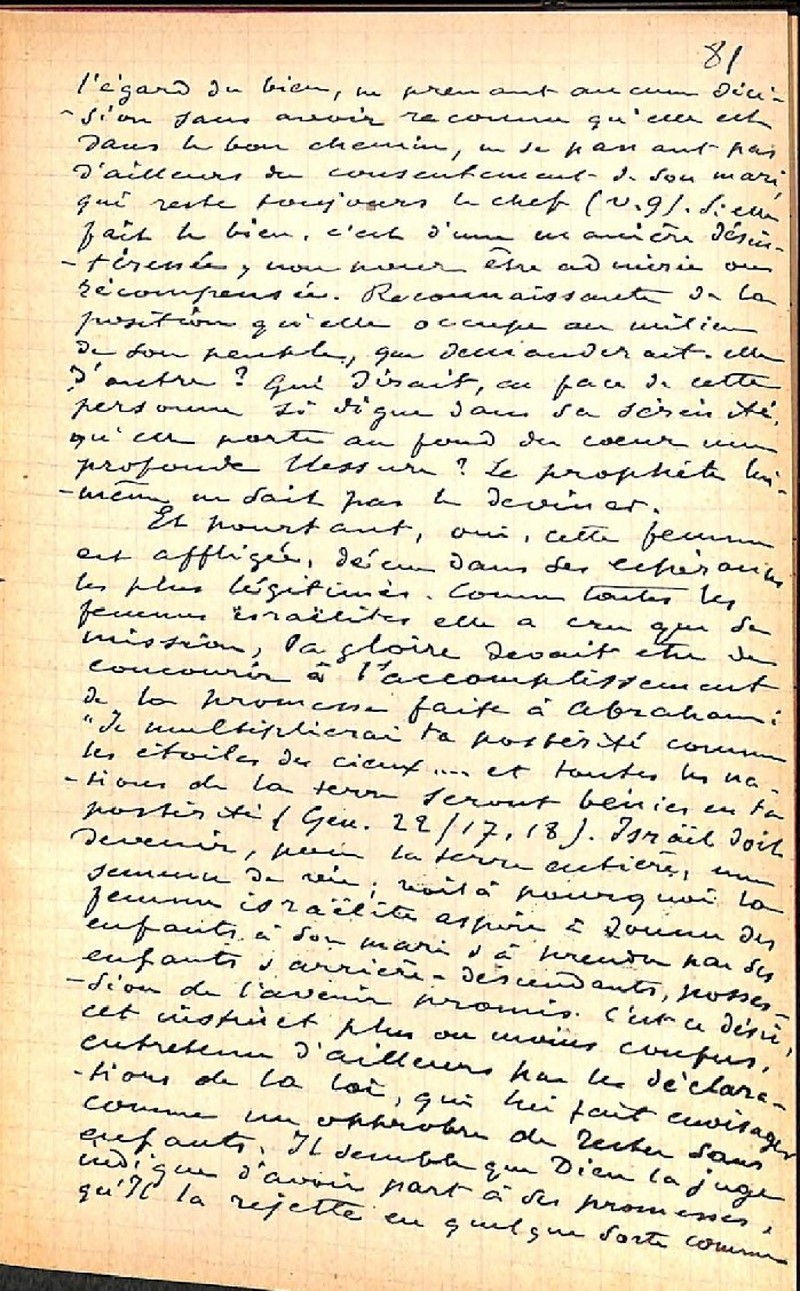 81
l'égard du bien, ne prenant aucune déci-
-sion sans avoir reconnu qu'elle est
dans le bon chemin, ne se passant pas
d'ailleurs du consentement de son mari,
qui reste toujours le chef (v.9). Si elle
fait le bien, c'est d'une manière désin-
-téressée, non pour être admirée ou
récompensée. Reconnaissante de la
position qu'elle occupe au milieu
de son peuple, que demanderait-elle
d'autre ? Qui dirait, en face de cette
personne si digne dans sa sérénité,
qu'elle porte au fond du coeur une
profonde blessure ? Le prophète lui-
-même ne sait pas le deviner.
Et pourtant, oui, cette femme
est affligée, déçue dans ses espérances
les plus légitimes. Comme toutes les
femmes israëlites elle a cru que sa
mission, sa gloire devait être de
concourir à l'accomplissement
de la promesse faite à Abraham :
"Je multiplierai ta postérité comme
les étoiles des cieux .... et toutes les na-
-tions de la terre seront bénies en ta
postérité (Gen. 22/17, 18). Israël doit
devenir, pour la terre entière, une
semence de vie ; voilà pourquoi la
femme israëlite aspire à donner des
enfants à son mari & à prendre par ses
enfants & arrière-descendants, posses-
-sion de l'avenir promis. C'est ce désir,
cet instinct plus ou moins confus,
entretenu d'ailleurs par les déclara-
-tions de la loi, qui lui fait envisager
comme un opprobre de rester sans
enfants. Il semble que Dieu la juge
indigne d'avoir part à ses promesses,
qu'Il la rejette en quelque sorte comme